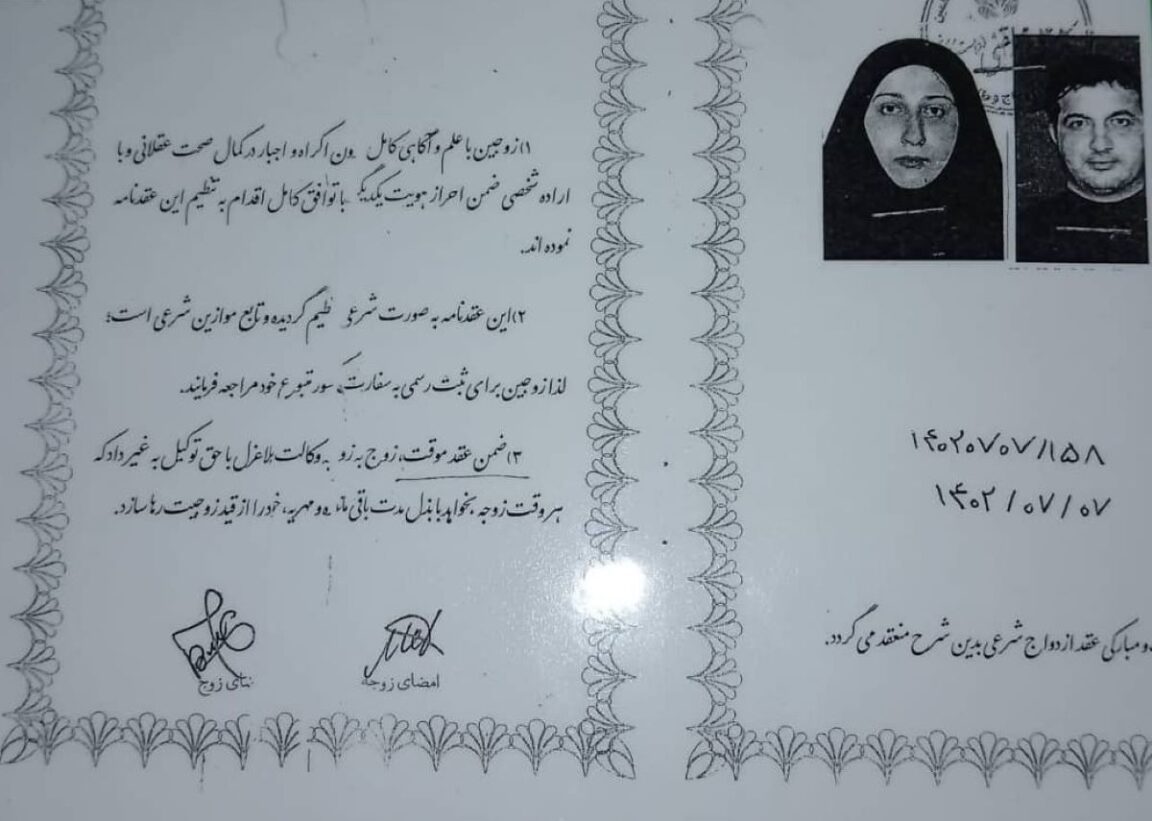 ۱۴۰۲۰۷۰۷/۱۵۸
۱۴۰۲/۰۷/۰۷
و مبارکی عقد ازدواج شرعی بدین شرح منعقد می گردد.
۱) زوجین با علم و آگاهی کامل ون اکراه و اجبار در کمال صحت عقلانی و با
اراده شخصی ضمن احراز هویت یکدیگر با توافق کامل اقدام به تنظیم این عقدنامه
نموده اند.
۲) این عقدنامه به صورت شرعی ظیم گردیده و تابع موازین شرعی است؛
لذا زوجین برای ثبت رسمی به سفارت کشور متبوع خود مراجعه فرمایند.
۳) ضمن عقد موقت، زوج به زو به وکالت بلاعزل با حق توکیل به غیر داد که
هر وقت زوجه بخواهد با بذل مدت باقی مانده و مهریه، خود را از قید زوجیت رها سازد.
امضای زوجه
ضای زوج